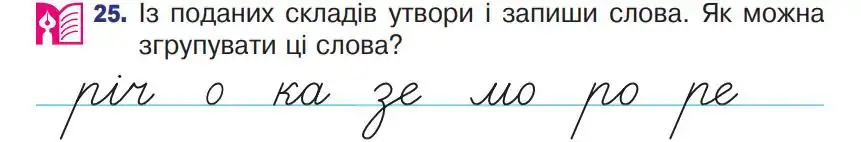 25. Із поданих складів утвори і запиши слова. Як можна
згрупувати ці слова?
річ о ка зе мо ро ре